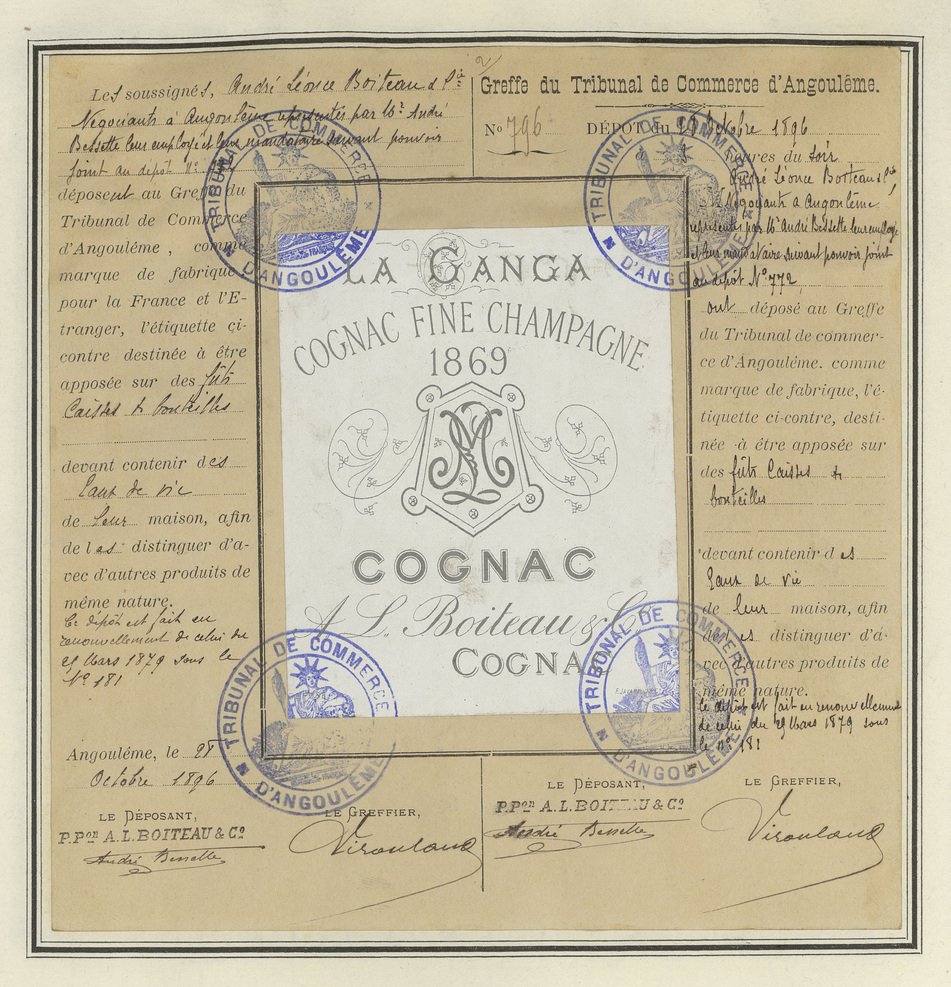 Les soussignés, André Léonce Boiteau & Cie
Négociants à Angoulême représentés par Mr André
Bessette leur employé et leur mandataire suivant pouvoir
joint au dépôt N°
déposent au Greffe du
Tribunal de Commerce
d'Angoulême, comme
marque de fabrique
pour la France et l'E-
tranger, l'étiquette ci-
contre destinée à être
apposée sur des fûts
Caisses & bouteilles
devant contenir des
Eaux de vie
de leur maison, afin
de les distinguer d'a-
vec d'autres produits de
même nature.
Ce dépôt est fait en
renouvellement de celui du
29 Mars 1879 sous le
N° 181
Angoulême, le 28
Octobre 1896
LE DÉPOSANT,
P.PON A.L. BOITEAU & Co
André Bessette
LE GREFFIER,
Viroulaud
LA GANGA
COGNAC FINE CHAMPAGNE
1869
COGNAC
A. L. Boiteau & Co
COGNAC
2
Greffe du Tribunal de Commerce d'Angoulême.
No 796
DÉPOT du Octobre 1896
à heures du soir
André Léonce Boiteau & Cie
Négociants à Angoulême
représentés par Mr André Bessette leur employé
et leur mandataire suivant pouvoir joint
au dépôt N° 772
ont déposé au Greffe
du Tribunal de commer-
ce d'Angoulême. comme
marque de fabrique, l'é-
tiquette ci-contre, desti-
née à être apposée sur
des fûts Caisses &
bouteilles
devant contenir des
Eaux de vie
de leur maison, afin
de les distinguer d'a-
vec d'autres produits de
même nature.
Ce dépôt est fait en renouvellement
de celui du 29 Mars 1879 sous
le N° 181
LE DÉPOSANT,
P.PON A.L. BOITEAU & Co
André Bessette
LE GREFFIER,
Viroulaud
TRIBUNAL DE COMMERCE D'ANGOULÊME
TRIBUNAL DE COMMERCE D'ANGOULÊME
TRIBUNAL DE COMMERCE D'ANGOULÊME
TRIBUNAL DE COMMERCE D'ANGOULÊME